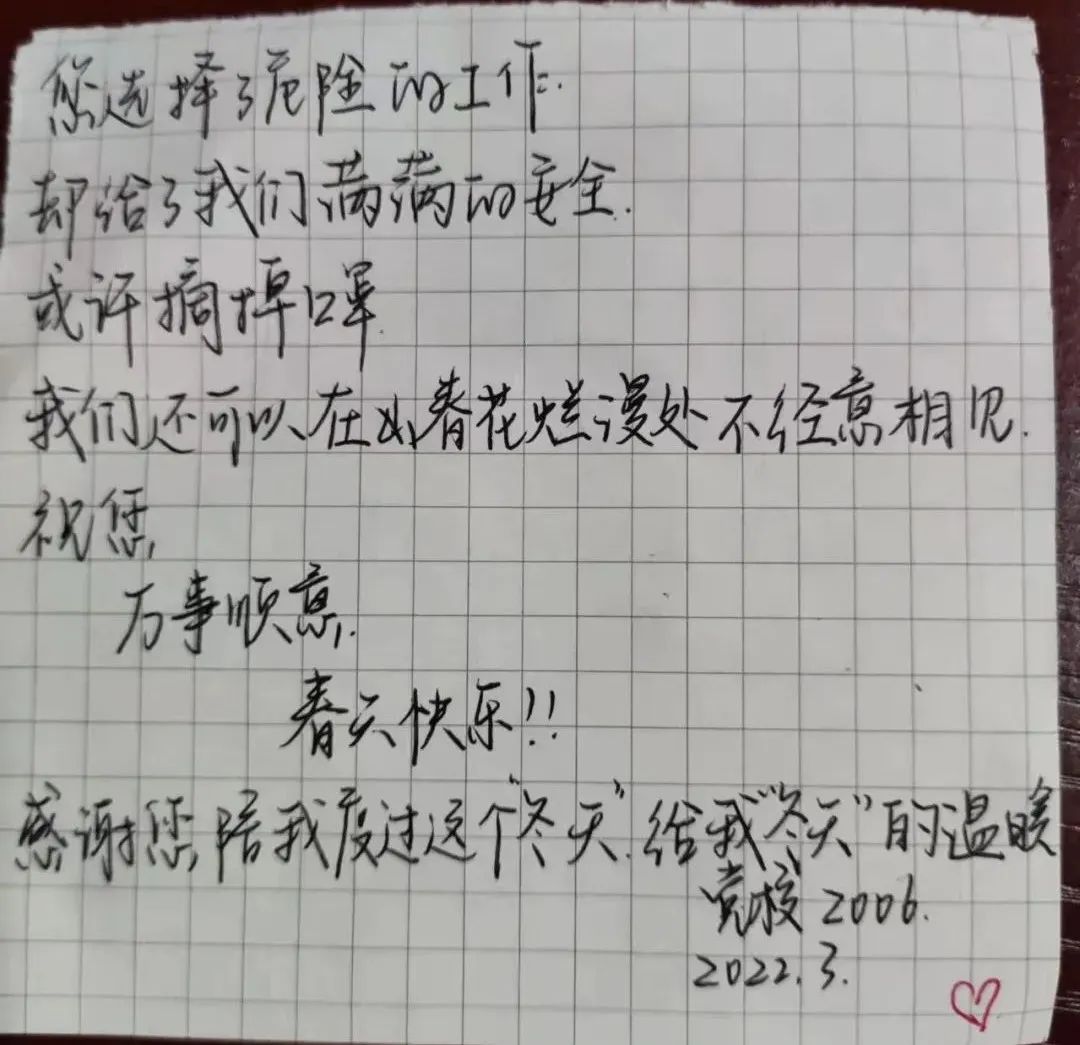 您选择了危险的工作.
却给了我们满满的安全.
或许摘掉口罩.
我们还可以在如春花烂漫处不经意相见.
祝您,
万事顺意.
春天快乐!!
感谢您陪我度过这个“冬天”.给我“冬天”的温暖
党校2006.
2022.3.